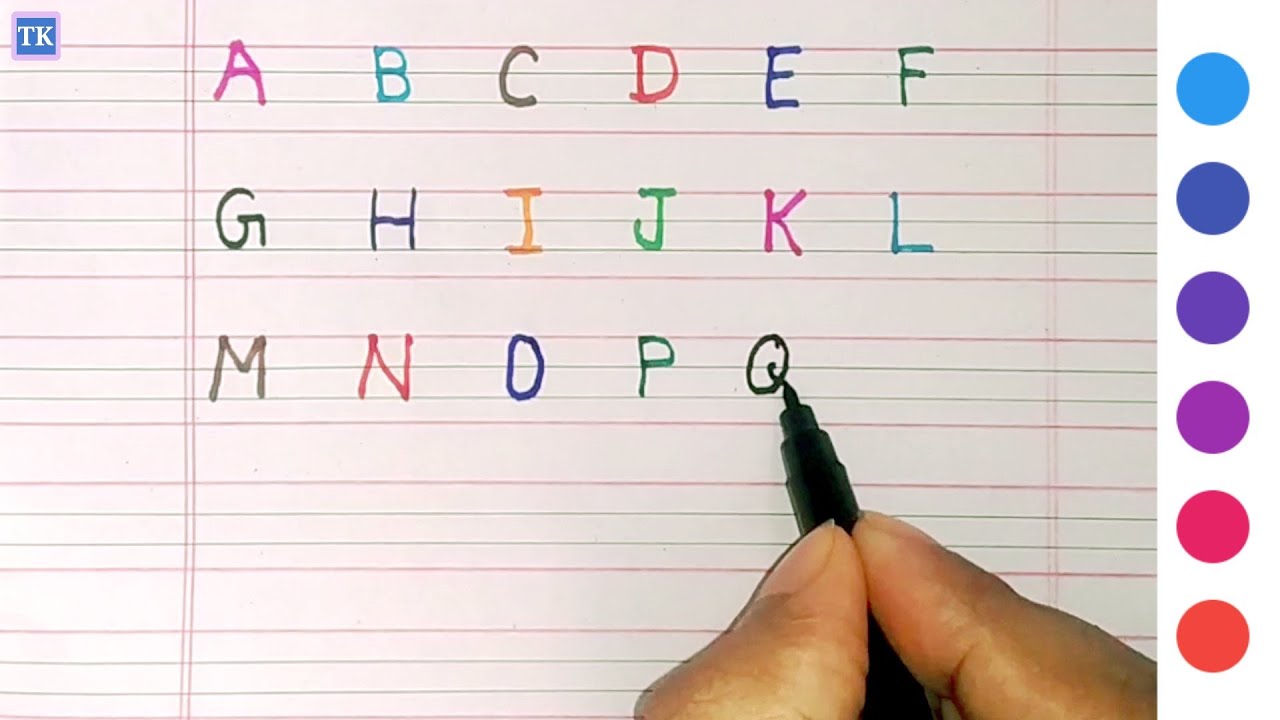 TK
A B C D E F
G H I J K L
M N O P Q